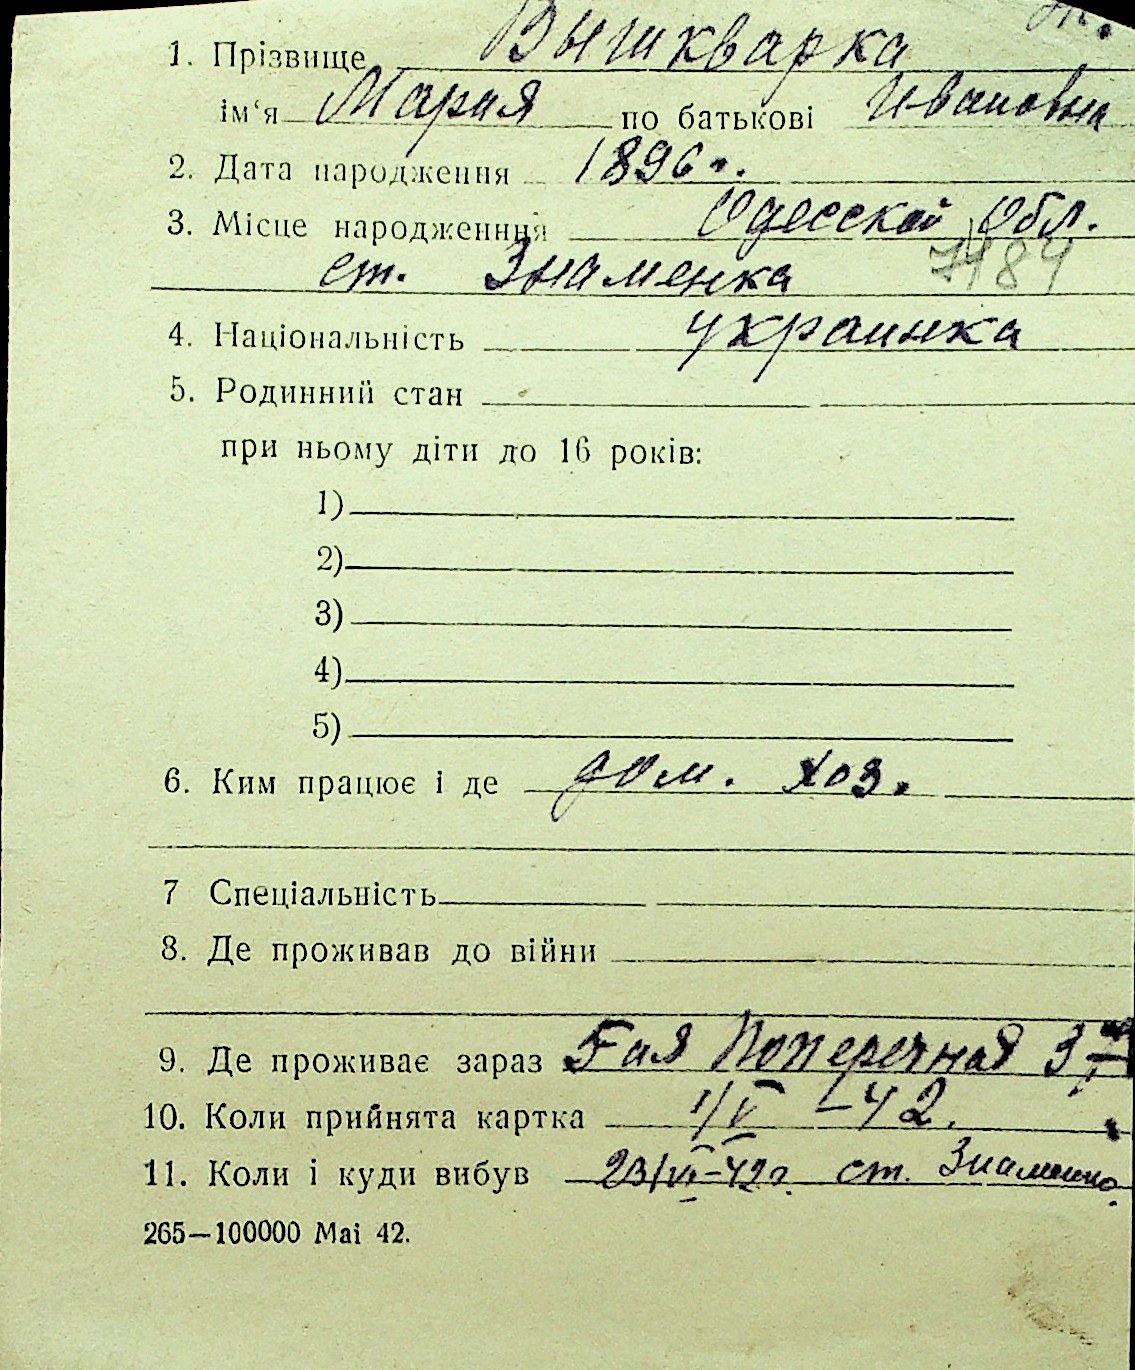 1. Прізвище Вышкварка
ім‘я Мария по батькові Ивановна
2. Дата народження 1896 г.
3. Місце народженння Одесской Обл.
ст. Знаменка 7184
4. Національність украинка
5. Родинний стан
при ньому діти до 16 років:
1)
2)
3)
4)
5)
6. Ким працює і де дом. хоз.
7 Спеціальність
8. Де проживав до війни
9. Де проживає зараз 5ая Поперечная
10. Коли прийнята картка 1/V –42.
11. Коли і куди вибув 23/VI–42г. ст. Знаменка.
265—100000 Маі 42.